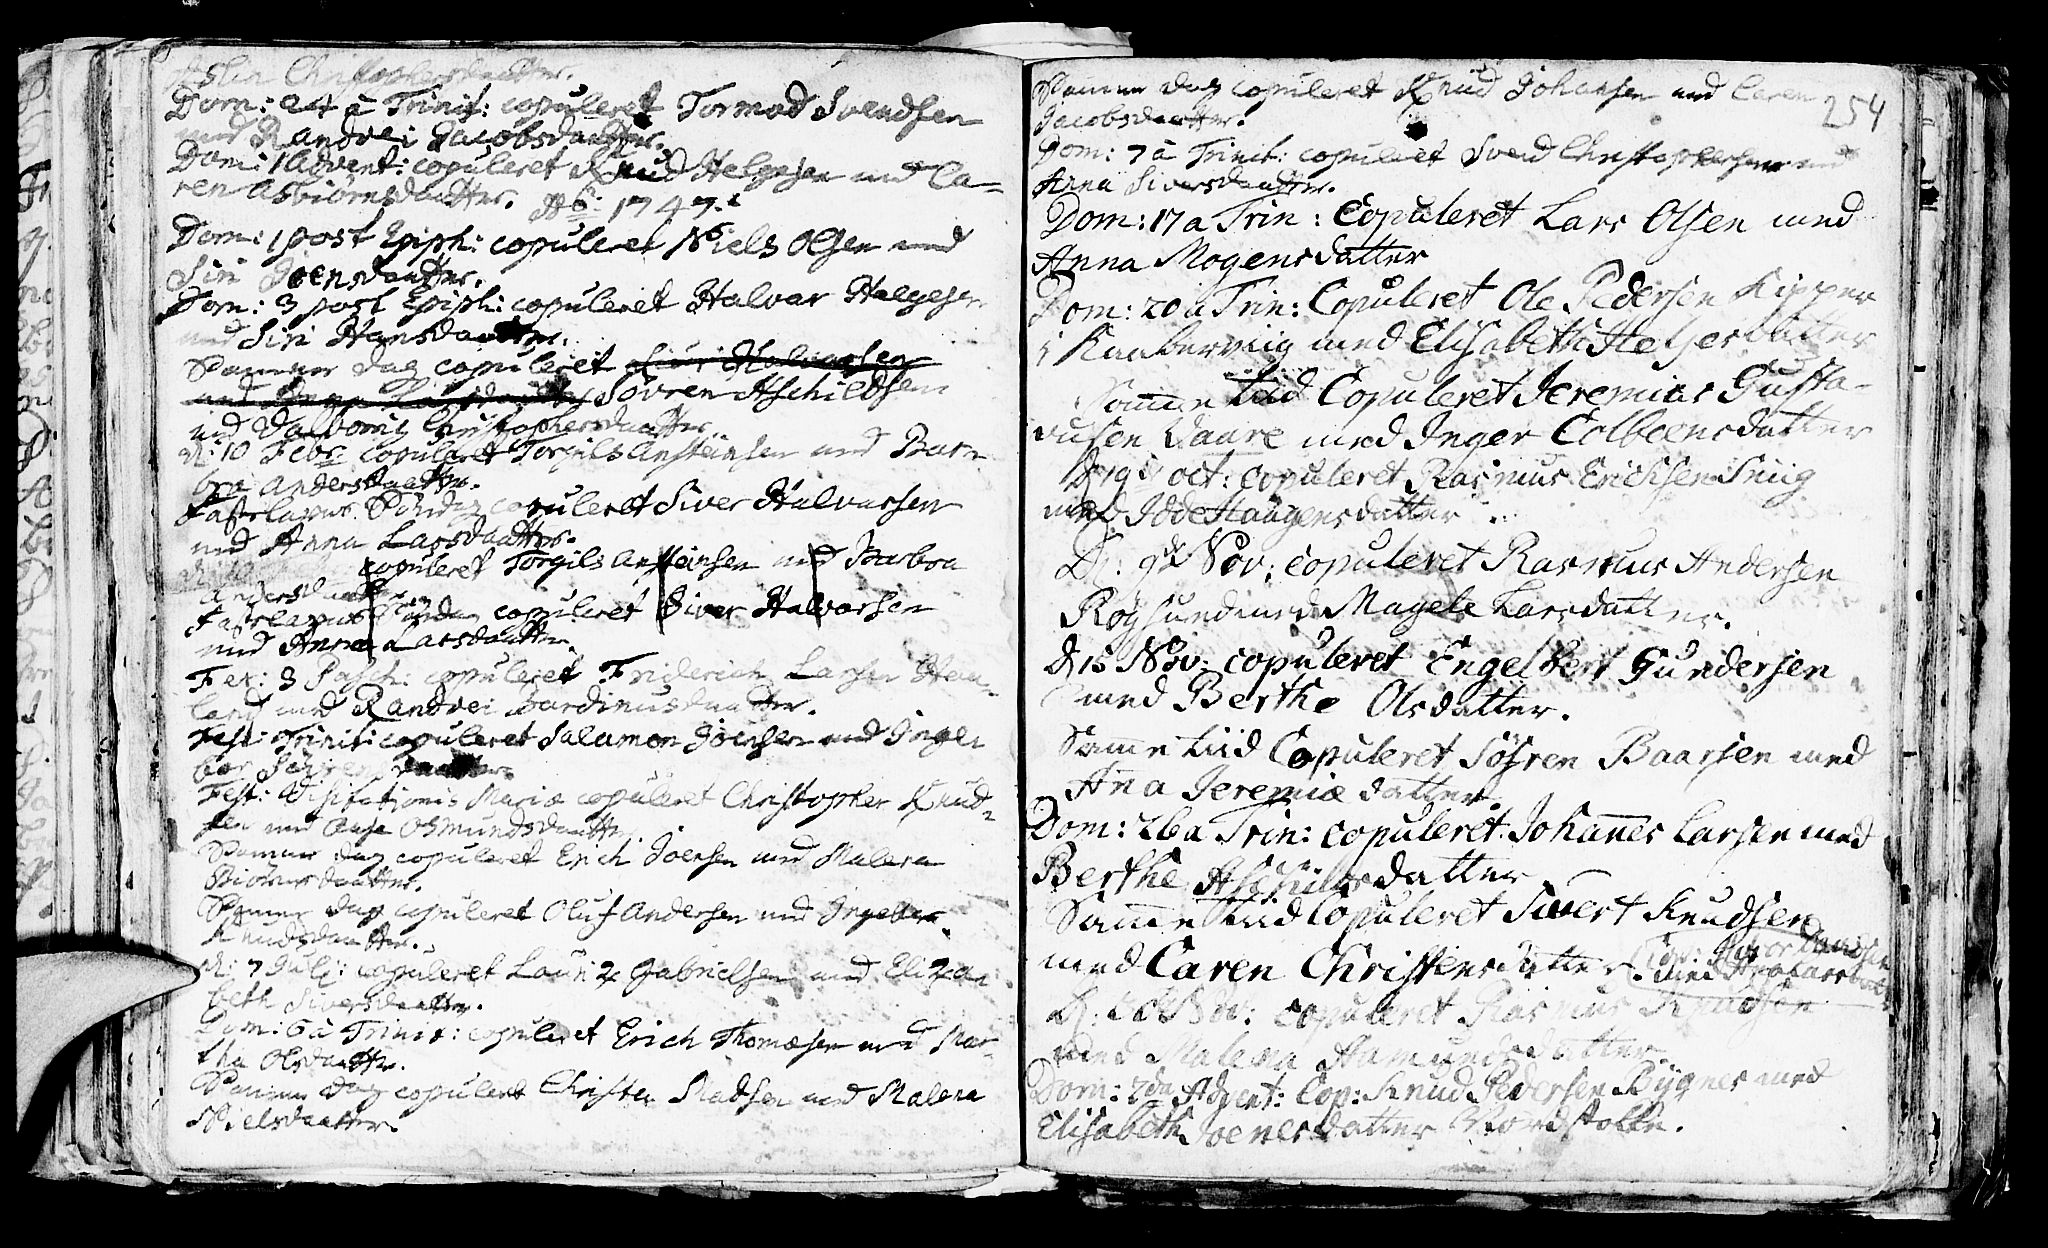 Aslin Christophersdaatter.
Dom: 24 à Trinit: copuleret Tormod Svendsen
med Randvei Jacobsdaatter.
Dom: 1 Advent: copuleret Knud Helgesen med Ca-
ren Asbiörnsdaatter. Aô 1747.
Dom: 1 post Epiph: copuleret Niels Olsen med
Siri Joensdaatter.
Dom: 3 post Epiph: copuleret Halvar Helgesen
med Siri Hansdaatter.
Samme dag copuleret Halvorsen
med Sövren Aschildsen
med Christophersdaatter.
d: 10 Febr: copuleret Torgils Ansteinsen med Bar-
bra Andersdaatter.
Fastelavns Söndag copuleret Siver Halvorsen
med Anna Larsdaatter.
copuleret Torgils Ansteinsen med Barbra
Andersdaatter
Fastelavns Söndag copuleret Siver Halvorsen
med Anna Larsdaatter.
Fer: 3 Pasch: copuleret Friderich Larsen
land med Randvei daatter.
Fest: Trinit: copuleret Salamon Joensen med Inge-
bor daatter.
Fest: Visitationis Mariæ copuleret Christopher Knud-
sen med Aase Osmundsdaatter
Samme dag copuleret Erich Joensen med Malena
Biörnsdaatter.
Samme dag copuleret Oluf Andersen med Ingebor
Knudsdaatter.
d: 7 Julj: copuleret Gabrielsen med Eliza-
beth Siversdaatter.
Dom: 6 à Trinit: copuleret Erich Thomæsen med Mar-
tha Olsdaatter.
Samme dag copuleret Christen Madsen med Malena
Nielsdaatter.
254
Samme dag copuleret Knud Johansen med Caren
Jacobsdaatter.
Dom: 7 à Trinit: copuleret Svend Christophersen med
Anna Siversdaatter.
Dom: 17 a Trin: Copuleret Lars Olsen med
Anna Mogensdatter
Dom: 20 a Trin: Copuleret Ole Pedersen Kipper
i med Elisabeth Heljesdatter
Samme tiid Copuleret Jeremias Gusta-
vusen Vaare med Inger Colbeensdatter
D 19 oct: copuleret Rasmus Erichsen
med Haagensdatter
D: 9de Nov: copuleret Rasmus Andersen
Rogsund med Magele Larsdatter.
D 15 Nov: copuleret Engelbert Gundersen
med Berthe Olsdatter.
Samme tiid Copuleret Sösren Baarsen med
Anna Jeremiæ datter.
Dom: 26 a Trin: copuleret Johannes Larsen med
Berthe Aschilsdatter
Samme tiid Copuleret Sivert Knudsen
med Caren Christensdatter. Cop:
med
D: Nov: copuleret Rasmus Knudsen
med Malena Aamundsdatter.
Dom: 2da Advent: Cop: Knud Pedersen Bÿgnes med
Elisabeth Joensdatter